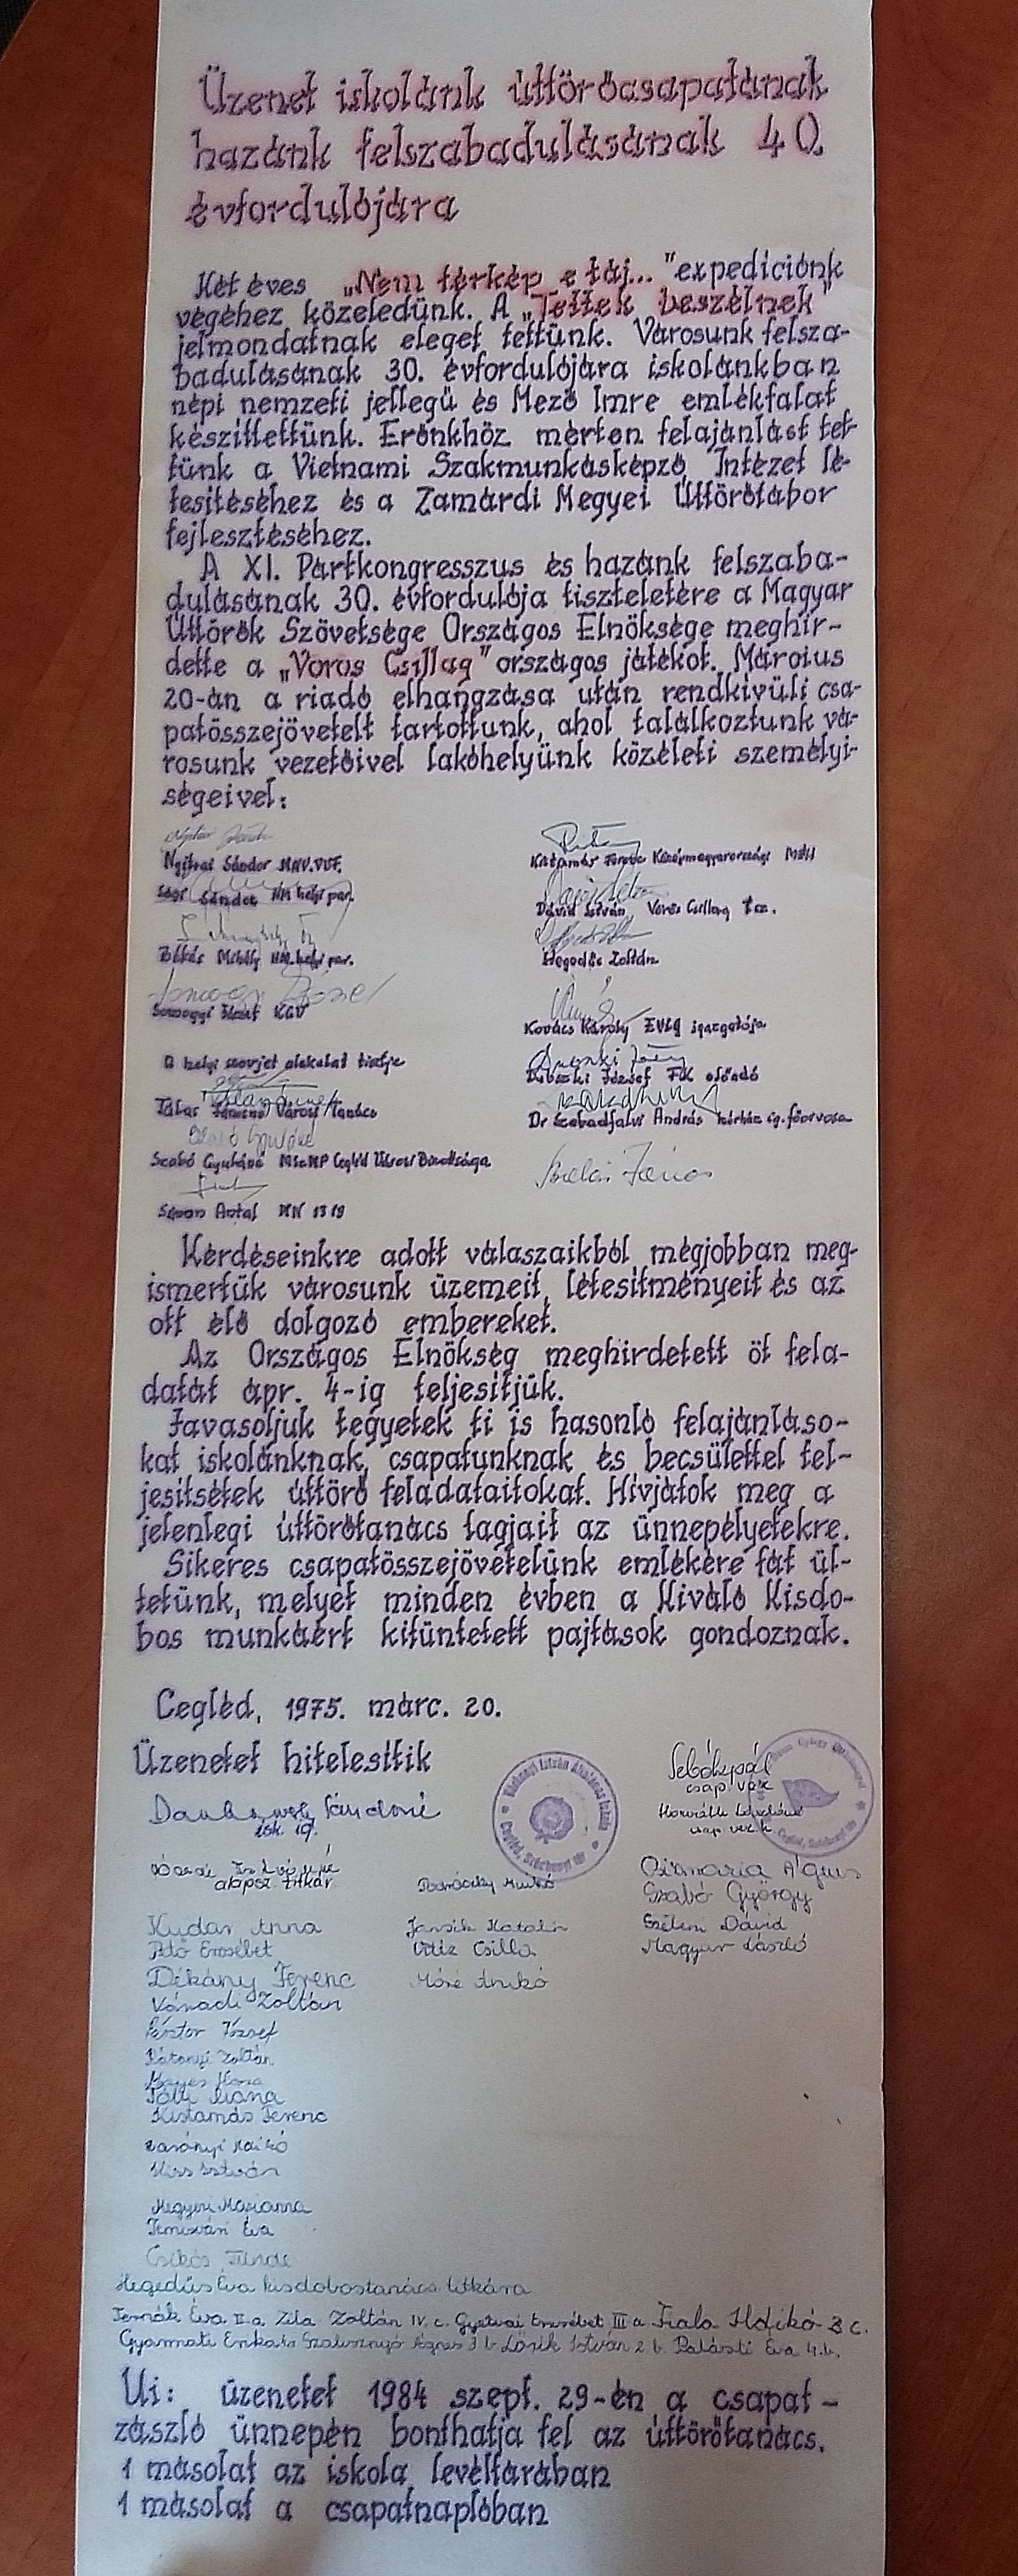 Üzenet iskolánk úttörőcsapatának
hazánk felszabadulásának 40.
évfordulójára
Két éves „Nem térkép e táj..." expediciónk
végéhez közeledünk. A „Tettek beszélnek"
jelmondatnak eleget tettünk. Városunk felsza-
badulásának 30. évfordulójára iskolánkban
népi nemzeti jellegü és Mező Imre emlékfalat
készitettünk. Erőnkhöz mérten felajánlást tet-
tünk a Vietnami Szakmunkásképző Intézet lé-
tesitéséhez és a Zamárdi Megyei Úttörőtábor
fejlesztéséhez.
A XI. Pártkongresszus és hazánk felszaba-
dulásának 30. évfordulója tiszteletére a Magyar
Úttörők Szövetsége Országos Elnöksége meghir-
dette a „Vörös Csillag" országos játékot. Március
20-án a riadó elhangzása után rendkivüli csa-
patösszejövetelt tartottunk, ahol találkoztunk vá-
rosunk vezetőivel lakóhelyünk közéleti személyi-
ségeivel:
Nyitrai Sándor MÁV.VVF.
Sági Sándor HM helyi par.
Békés Mihály HM. helyi par.
Somogyi József
Somogyi József KGV
A helyi szovjet alakulat tisztje
Tatár Jánosné Városi Tanács
Szabó Gyuláné
Szabó Gyuláné MSZMP Cegléd Városi Bizottsága
Simon Antal MN 1319
Ferenc Középmagyarországi
Dávid István Vörös Csillag Tsz.
Hegedűs Zoltán
Kovács Károly EVIG igazgatója
Dubecki József FÜK előadó
Dr Szabadfalvi András kórház ig. főorvosa
János
Kérdéseinkre adott válaszaikból mégjobban meg-
ismertük városunk üzemeit, létesitményeit és az
ott élő dolgozó embereket.
Az Országos Elnökség meghirdetett öt fela-
datát ápr. 4-ig teljesitjük.
Javasoljuk tegyetek ti is hasonló felajánláso-
kat iskolánknak, csapatunknak és becsülettel tel-
jesitsétek úttörő feladataitokat. Hívjátok meg a
jelenlegi úttörőtanács tagjait az ünnepélyetekre.
Sikeres csapatösszejövetelünk emlékére fát ül-
tetünk, melyet minden évben a Kiváló Kisdo-
bos munkáért kitüntetett pajtások gondoznak.
Cegléd, 1975. márc. 20.
Üzenetet hitelesitik
Sándorné
isk. ig.
Széchenyi István Általános Iskola
Cegléd, Széchenyi út
csap. vez.
Horváth Lászlóné
csap. vez. h.
Cegléd, Széchenyi út
alapsz. titkár
Anikó
Ágnes
Szabó György
Kudar Anna
Katalin
Dávid
Pető Erzsébet
Vitéz Csilla
Magyar László
Dékány Ferenc
Móré Anikó
Váradi Zoltán
Pásztor József
Rátonyi Zoltán
Tóth Ilona
Kistamás Ferenc
Kiss István
Megyeri Marianna
Temesvári Éva
Csikós Tünde
Hegedűs Éva kisdobostanács titkára
Ternák Éva II.a Zila Zoltán IV. c. Gyetvai Erzsébet III a Fiala Ildikó 3 c.
Gyarmati Erika Ágnes 3 b István 2 b. Palásti Éva 4.b.
Ui: üzenetet 1984 szept. 29-én a csapat-
zászló ünnepén bonthatja fel az úttörőtanács.
1 másolat az iskola levéltárában
1 másolat a csapatnaplóban